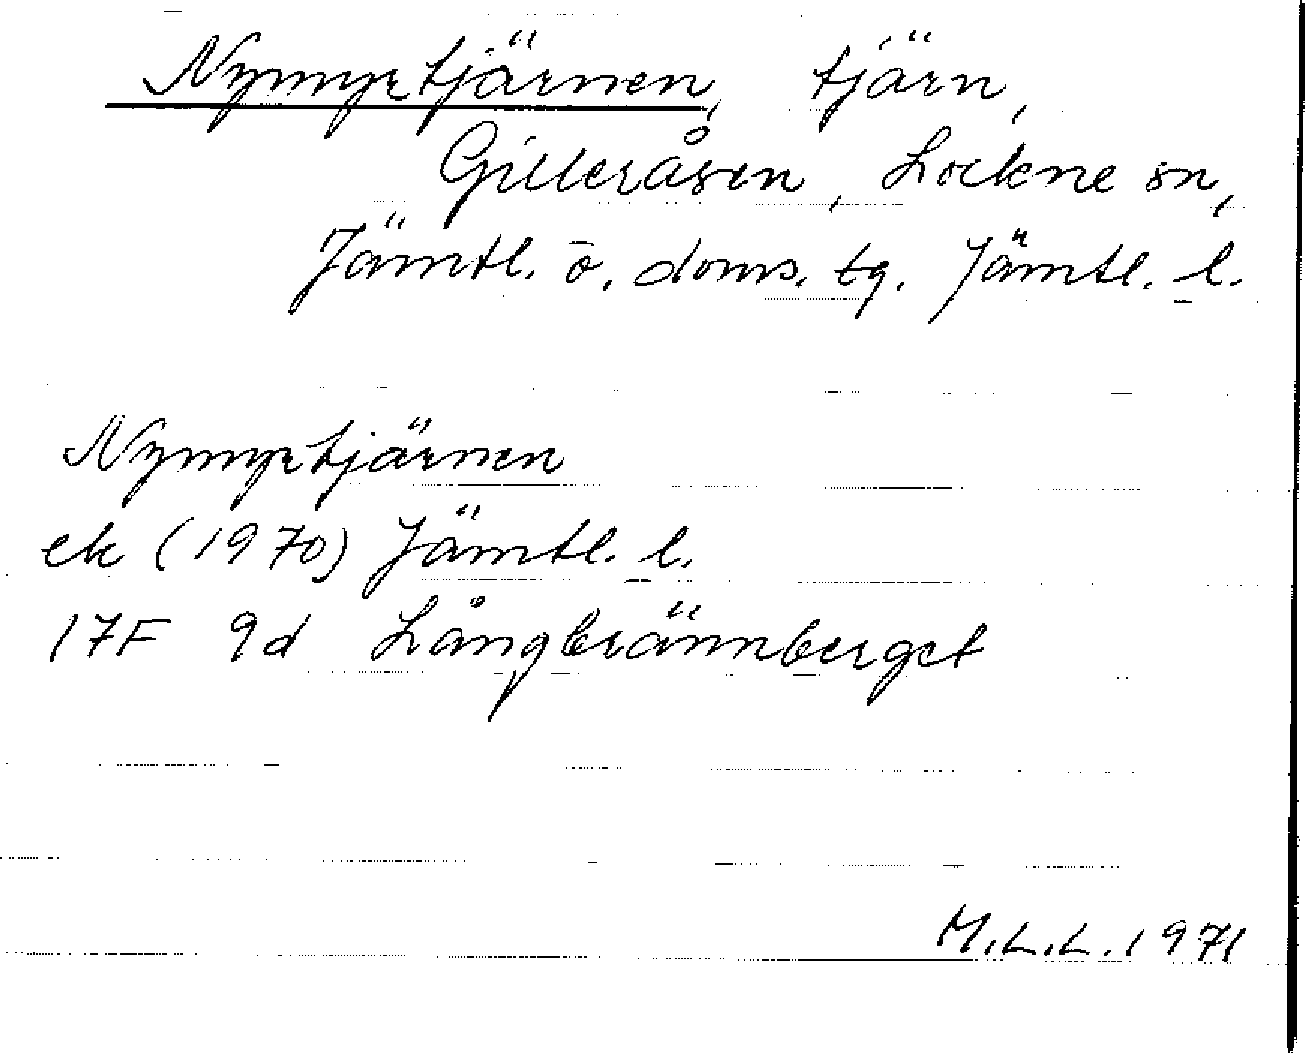 Nymyrtjärnen, tjärn,
Gilleråsen, Lockne sn,
Jämtl. ö. doms. tg. Jämtl. l.
Nymyrtjärnen
ek (1970) Jämtl. l.
17F 9d Långbrännberget
M.L.L. 1971